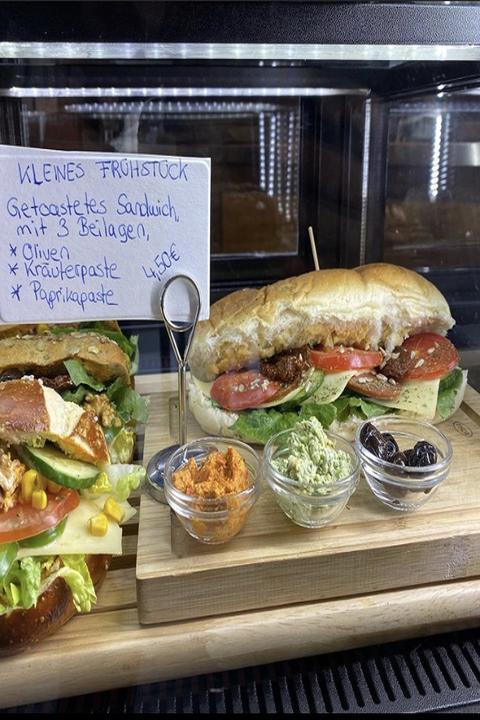 KLEINES FRÜHSTÜCK
Getoastetes Sandwich,
mit 3 Beilagen,
* Oliven
* Kräuterpaste 4,50€
* Paprikapaste